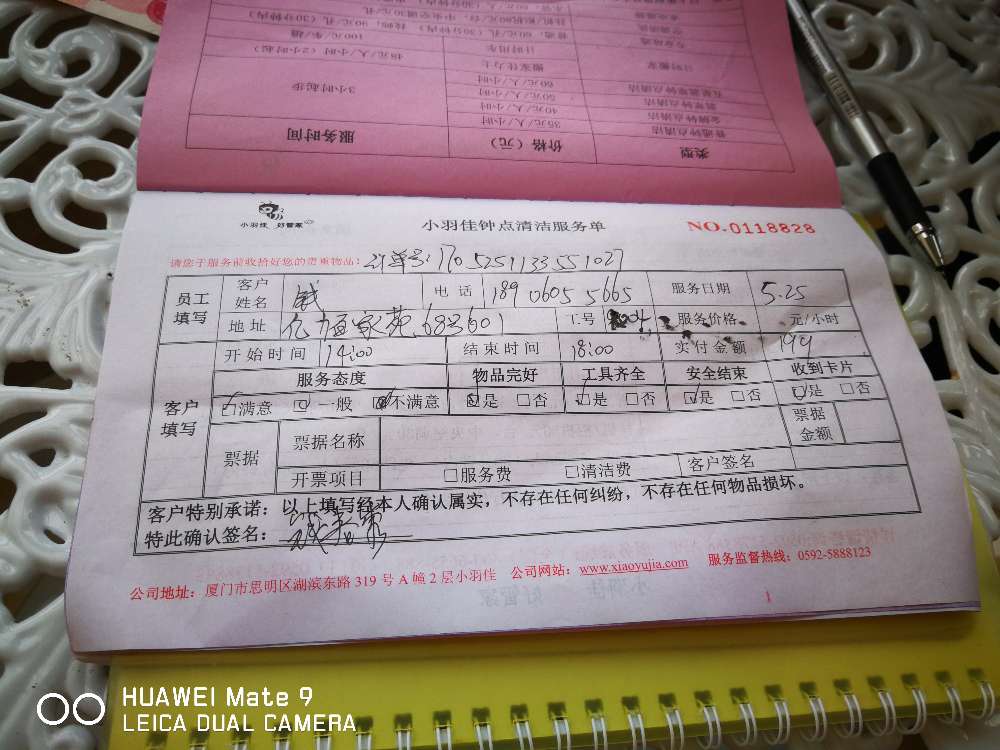 类型 价格（元） 服务时间
普通钟点清洁 35元/人/小时 3小时起步
金牌钟点清洁 40元/人/小时
50元/人/小时
60元/人/小时
搬家佳力士 48元/人/小时（2小时起）
计时用车 100元/车/趟
小羽佳 好管家
小羽佳钟点清洁服务单
NO.0118828
请您于服务前收拾好您的贵重物品：订单号：1705251133551027
员工填写 客户姓名 电话 189 0605 5665 服务日期 5.25
地址 工号 服务价格 元/小时
开始时间 14:00 结束时间 18:00 实付金额 199
客户填写 服务态度 物品完好 工具齐全 安全结束 收到卡片
☑满意 □一般 不满意 ☑是 □否 ☑是 □否 ☑是 □否 ☑是 □否
票据 票据名称 票据金额
开票项目 □服务费 □清洁费 客户签名
客户特别承诺：以上填写经本人确认属实，不存在任何纠纷，不存在任何物品损坏。
特此确认签名：
公司地址：厦门市思明区湖滨东路 319 号 A 幢 2 层小羽佳 公司网站：www.xiaoyujia.com 服务监督热线：0592-5888123
1
HUAWEI Mate 9
LEICA DUAL CAMERA